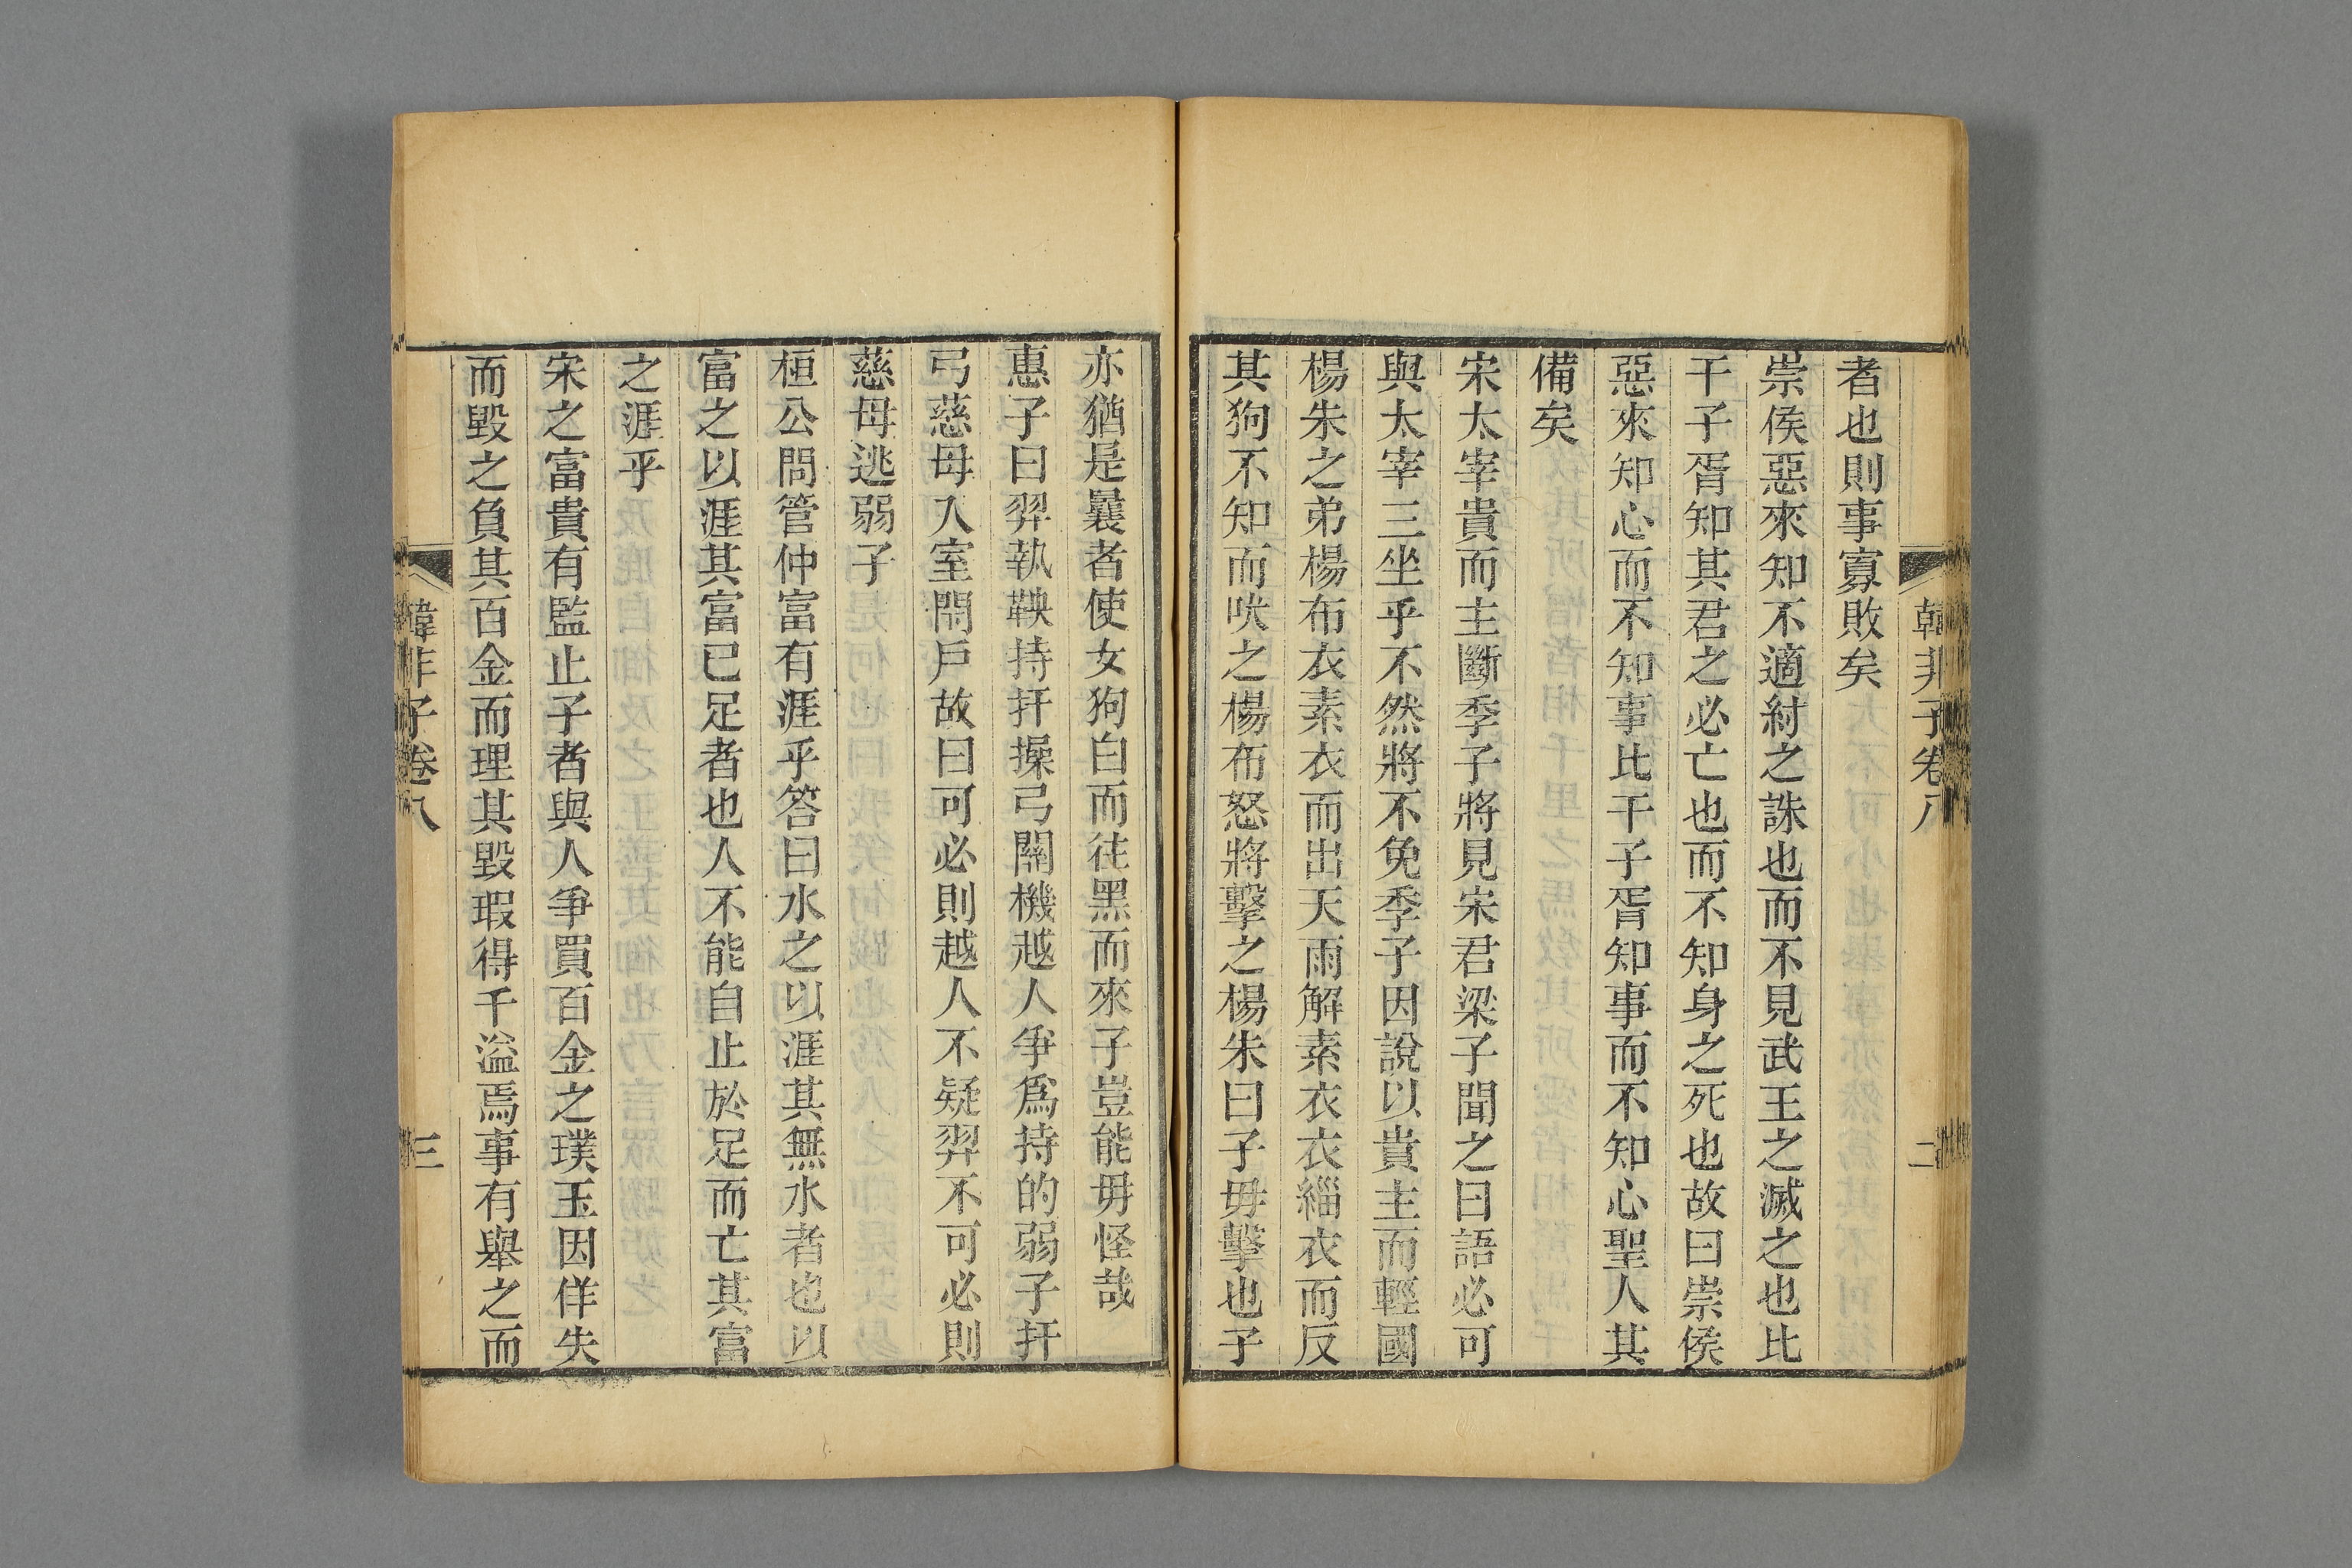 韓非子卷八
二
者也則事寡敗矣
崇侯惡來知不適紂之誅也而不見武王之滅之也比
干子胥知其君之必亡也而不知身之死也故曰崇侯
惡來知心而不知事比干子胥知事而不知心聖人其
備矣
宋太宰貴而主斷季子將見宋君梁子聞之曰語必可
與太宰三坐乎不然將不免季子因說以貴主而輕國
楊朱之弟楊布衣素衣而出天雨解素衣衣緇衣而反
其狗不知而吠之楊布怒將擊之楊朱曰子毋擊也子
亦猶是曩者使女狗白而往黑而來子豈能毋怪哉
惠子曰羿執鞅持扞操弓關機越人爭爲持的弱子扞
弓慈母入室閉戶故曰可必則越人不疑羿不可必則
慈母逃弱子
桓公問管仲富有涯乎答曰水之以涯其無水者也以
富之以涯其富已足者也人不能自止於足而亡其富
之涯乎
宋之富貴有監止子者與人爭買百金之璞玉因佯失
而毀之負其百金而理其毀瑕得千溢焉事有舉之而
韓非子卷八
三